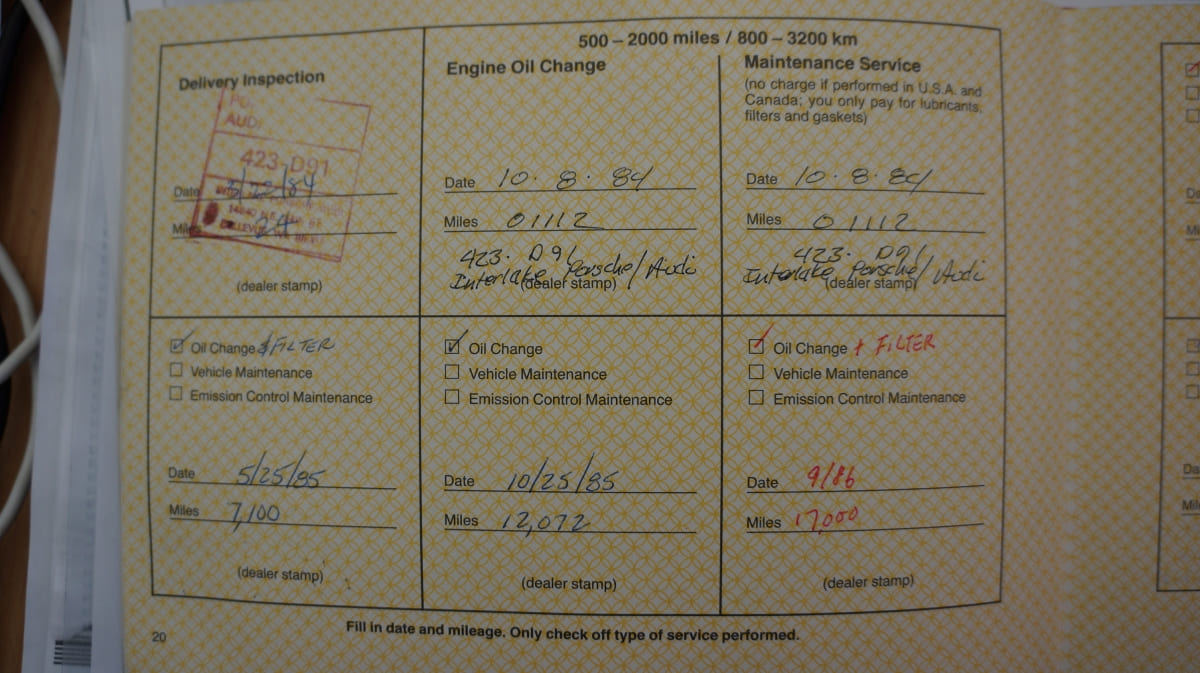 500 – 2000 miles / 800 – 3200 km
Delivery Inspection
AUDI
423-D91
Date
Miles 24
(dealer stamp)
Engine Oil Change
Date 10 · 8 · 84
Miles 01112
423 · D91
Interlake Porsche/Audi
(dealer stamp)
Maintenance Service
(no charge if performed in U.S.A. and
Canada; you only pay for lubricants,
filters and gaskets)
Date 10 · 8 · 84
Miles 01112
423 · D91
Interlake Porsche/Audi
(dealer stamp)
Oil Change & FILTER
Vehicle Maintenance
Emission Control Maintenance
Date 5/25/85
Miles 7,100
(dealer stamp)
Oil Change
Vehicle Maintenance
Emission Control Maintenance
Date 10/25/85
Miles 12,072
(dealer stamp)
Oil Change + FILTER
Vehicle Maintenance
Emission Control Maintenance
Date 9/86
Miles 17,000
(dealer stamp)
20
Fill in date and mileage. Only check off type of service performed.